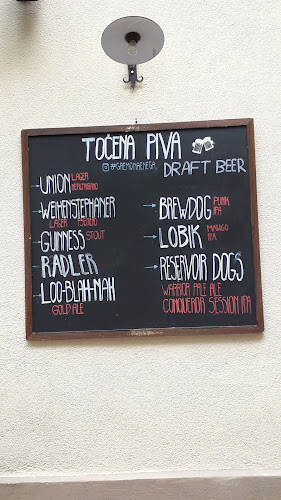 TOČENA PIVA
DRAFT BEER
UNION LAGER
WEIHENSTEPHANER
LAGER PŠENIČNO
GUINNESS STOUT
RADLER
LOO-BLAH-NAH
GOLD ALE
BREWDOG PUNK IPA
LOBIK MANGO IPA
RESERVOIR DOGS
WARRIOR PALE ALE
CONQUEROR SESSION IPA